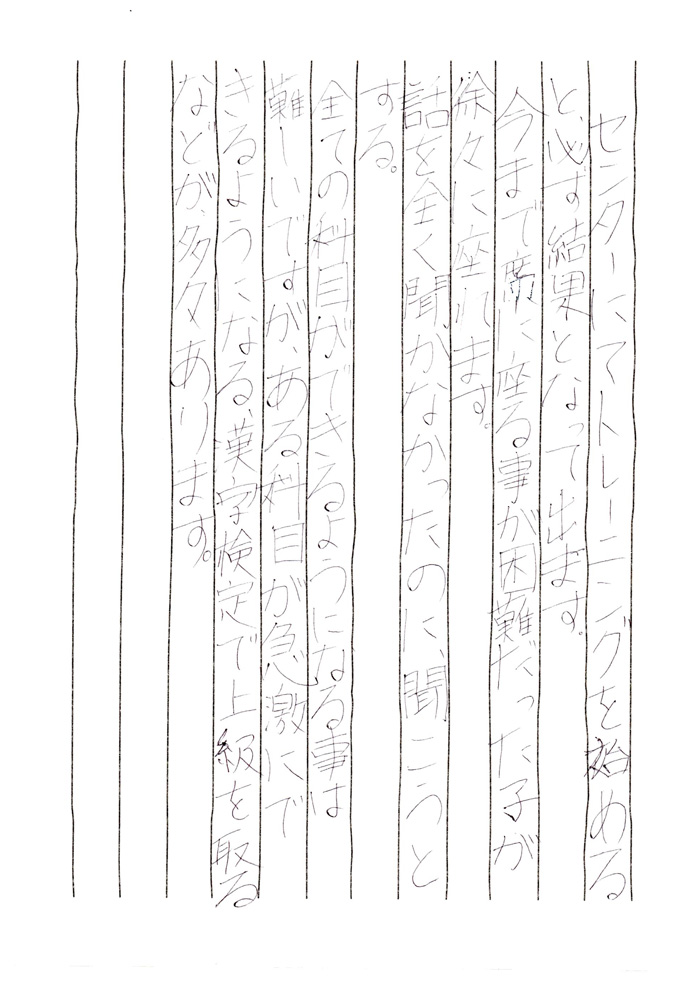 センターにてトレーニングを始める
と、必ず結果となって出ます。
今まで席に座る事が困難だった子が
徐々に座れます。
話を全く聞かなかったのに、聞こうと
する。
全ての科目ができるようになる事は
難しいですが、ある科目が急激にで
きるようになる、漢字検定で上級を取る
などが、多々あります。